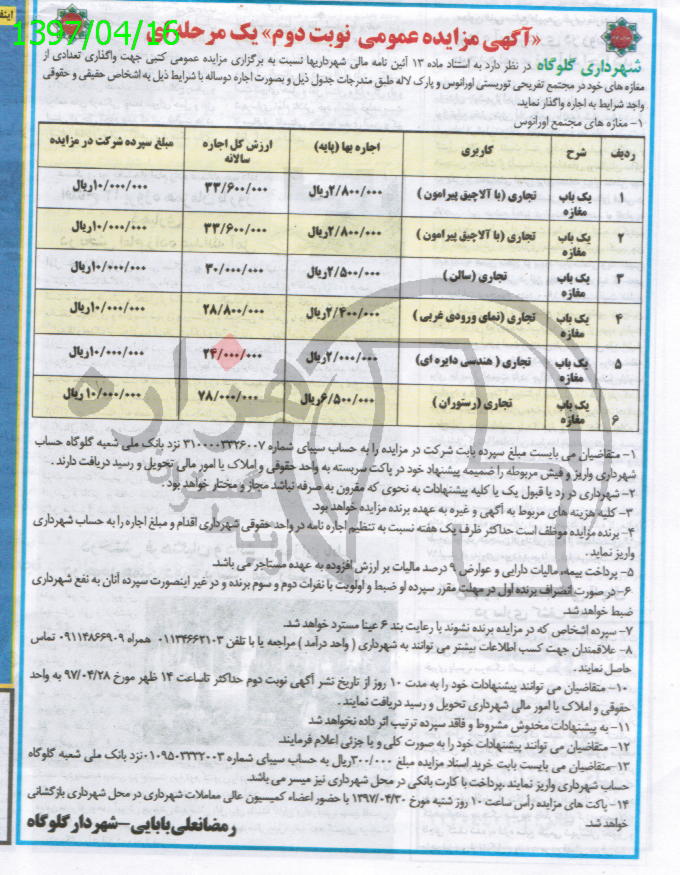 1397/04/16
«آگهی مزایده عمومی نوبت دوم» یک مرحله ای
شهرداری گلوگاه در نظر دارد به استناد ماده ۱۳ آئین نامه مالی شهرداریها نسبت به برگزاری مزایده عمومی کتبی جهت واگذاری تعدادی از
مغازه های خود در مجتمع تفریحی توریستی اورانوس و پارک لاله طبق مندرجات جدول ذیل و بصورت اجاره دوساله با شرایط ذیل به اشخاص حقیقی و حقوقی
واجد شرایط به اجاره واگذار نماید.
۱- مغازه های مجتمع اورانوس
ردیف شرح کاربری اجاره بها (پایه) ارزش کل اجاره سالانه مبلغ سپرده شرکت در مزایده
۱ یک باب مغازه تجاری (با آلاچیق پیرامون) ۲/۸۰۰/۰۰۰ریال ۳۳/۶۰۰/۰۰۰ ۱۰/۰۰۰/۰۰۰ریال
۲ یک باب مغازه تجاری (با آلاچیق پیرامون) ۲/۸۰۰/۰۰۰ریال ۳۳/۶۰۰/۰۰۰ ۱۰/۰۰۰/۰۰۰ریال
۳ یک باب مغازه تجاری (سالن) ۲/۵۰۰/۰۰۰ریال ۳۰/۰۰۰/۰۰۰ ۱۰/۰۰۰/۰۰۰ریال
۴ یک باب مغازه تجاری (نمای ورودی غربی) ۲/۴۰۰/۰۰۰ریال ۲۸/۸۰۰/۰۰۰ ۱۰/۰۰۰/۰۰۰ریال
۵ یک باب مغازه تجاری (هندسی دایره ای) ۲/۰۰۰/۰۰۰ریال ۲۴/۰۰۰/۰۰۰ ۱۰/۰۰۰/۰۰۰ریال
۶ یک باب مغازه تجاری (رستوران) ۶/۵۰۰/۰۰۰ریال ۷۸/۰۰۰/۰۰۰ ۱۰/۰۰۰/۰۰۰ ریال
۱- متقاضیان می بایست مبلغ سپرده بابت شرکت در مزایده را به حساب سیبای شماره ۳۱۰۰۰۰۳۳۲۶۰۰۷ نزد بانک ملی شعبه گلوگاه حساب
شهرداری واریز و فیش مربوطه را ضمیمه پیشنهاد خود در پاکت سربسته به واحد حقوقی و املاک یا امور مالی تحویل و رسید دریافت دارند.
۲- شهرداری در رد یا قبول یک یا کلیه پیشنهادات به نحوی که مقرون به صرفه نباشد مجاز و مختار خواهد بود.
۳- کلیه هزینه های مربوط به آگهی و غیره به عهده برنده مزایده خواهد بود.
۴- برنده مزایده موظف است حداکثر ظرف یک هفته نسبت به تنظیم اجاره نامه در واحد حقوقی شهرداری اقدام و مبلغ اجاره را به حساب شهرداری
واریز نماید.
۵- پرداخت بیمه، مالیات دارایی و عوارض ۹ درصد مالیات بر ارزش افزوده به عهده مستاجر می باشد.
۶- در صورت انصراف برنده اول در مهلت مقرر سپرده او ضبط و اولویت با نفرات دوم و سوم برنده و در غیر اینصورت سپرده آنان به نفع شهرداری
ضبط خواهد شد.
۷- سپرده اشخاص که در مزایده برنده نشوند با رعایت بند ۶ عینا مسترد خواهد شد.
۸- علاقمندان جهت کسب اطلاعات بیشتر می توانند به شهرداری ( واحد درآمد ) مراجعه یا با تلفن ۰۱۱۳۴۶۶۲۱۰۳ همراه ۰۹۱۱۴۸۶۶۹۰۹ تماس
حاصل نمایند.
۱۰- متقاضیان می توانند پیشنهادات خود را به مدت ۱۰ روز از تاریخ نشر آگهی نوبت دوم حداکثر تاساعت ۱۴ ظهر مورخ ۹۷/۰۴/۲۸ به واحد
حقوقی و املاک یا امور مالی شهرداری تحویل و رسید دریافت نمایند.
۱۱- به پیشنهادات مخدوش مشروط و فاقد سپرده ترتیب اثر داده نخواهد شد
۱۲- متقاضیان می توانند پیشنهادات خود را به صورت کلی و یا جزئی اعلام فرمایند.
۱۳- متقاضیان می بایست بابت خرید اسناد مزایده مبلغ ۳۰۰/۰۰۰ریال به حساب سیبای شماره ۰۱۰۹۵۰۳۳۳۲۰۰۳نزد بانک ملی شعبه گلوگاه
حساب شهرداری واریز نمایند.پرداخت با کارت بانکی در محل شهرداری نیز میسر می باشد.
۱۴- پاکت های مزایده رأس ساعت ۱۰ روز شنبه مورخ ۱۳۹۷/۰۴/۳۰ با حضور اعضاء کمیسیون عالی معاملات شهرداری در محل شهرداری بازگشائی
خواهد شد.
رمضانعلی بابایی-شهردار گلوگاه